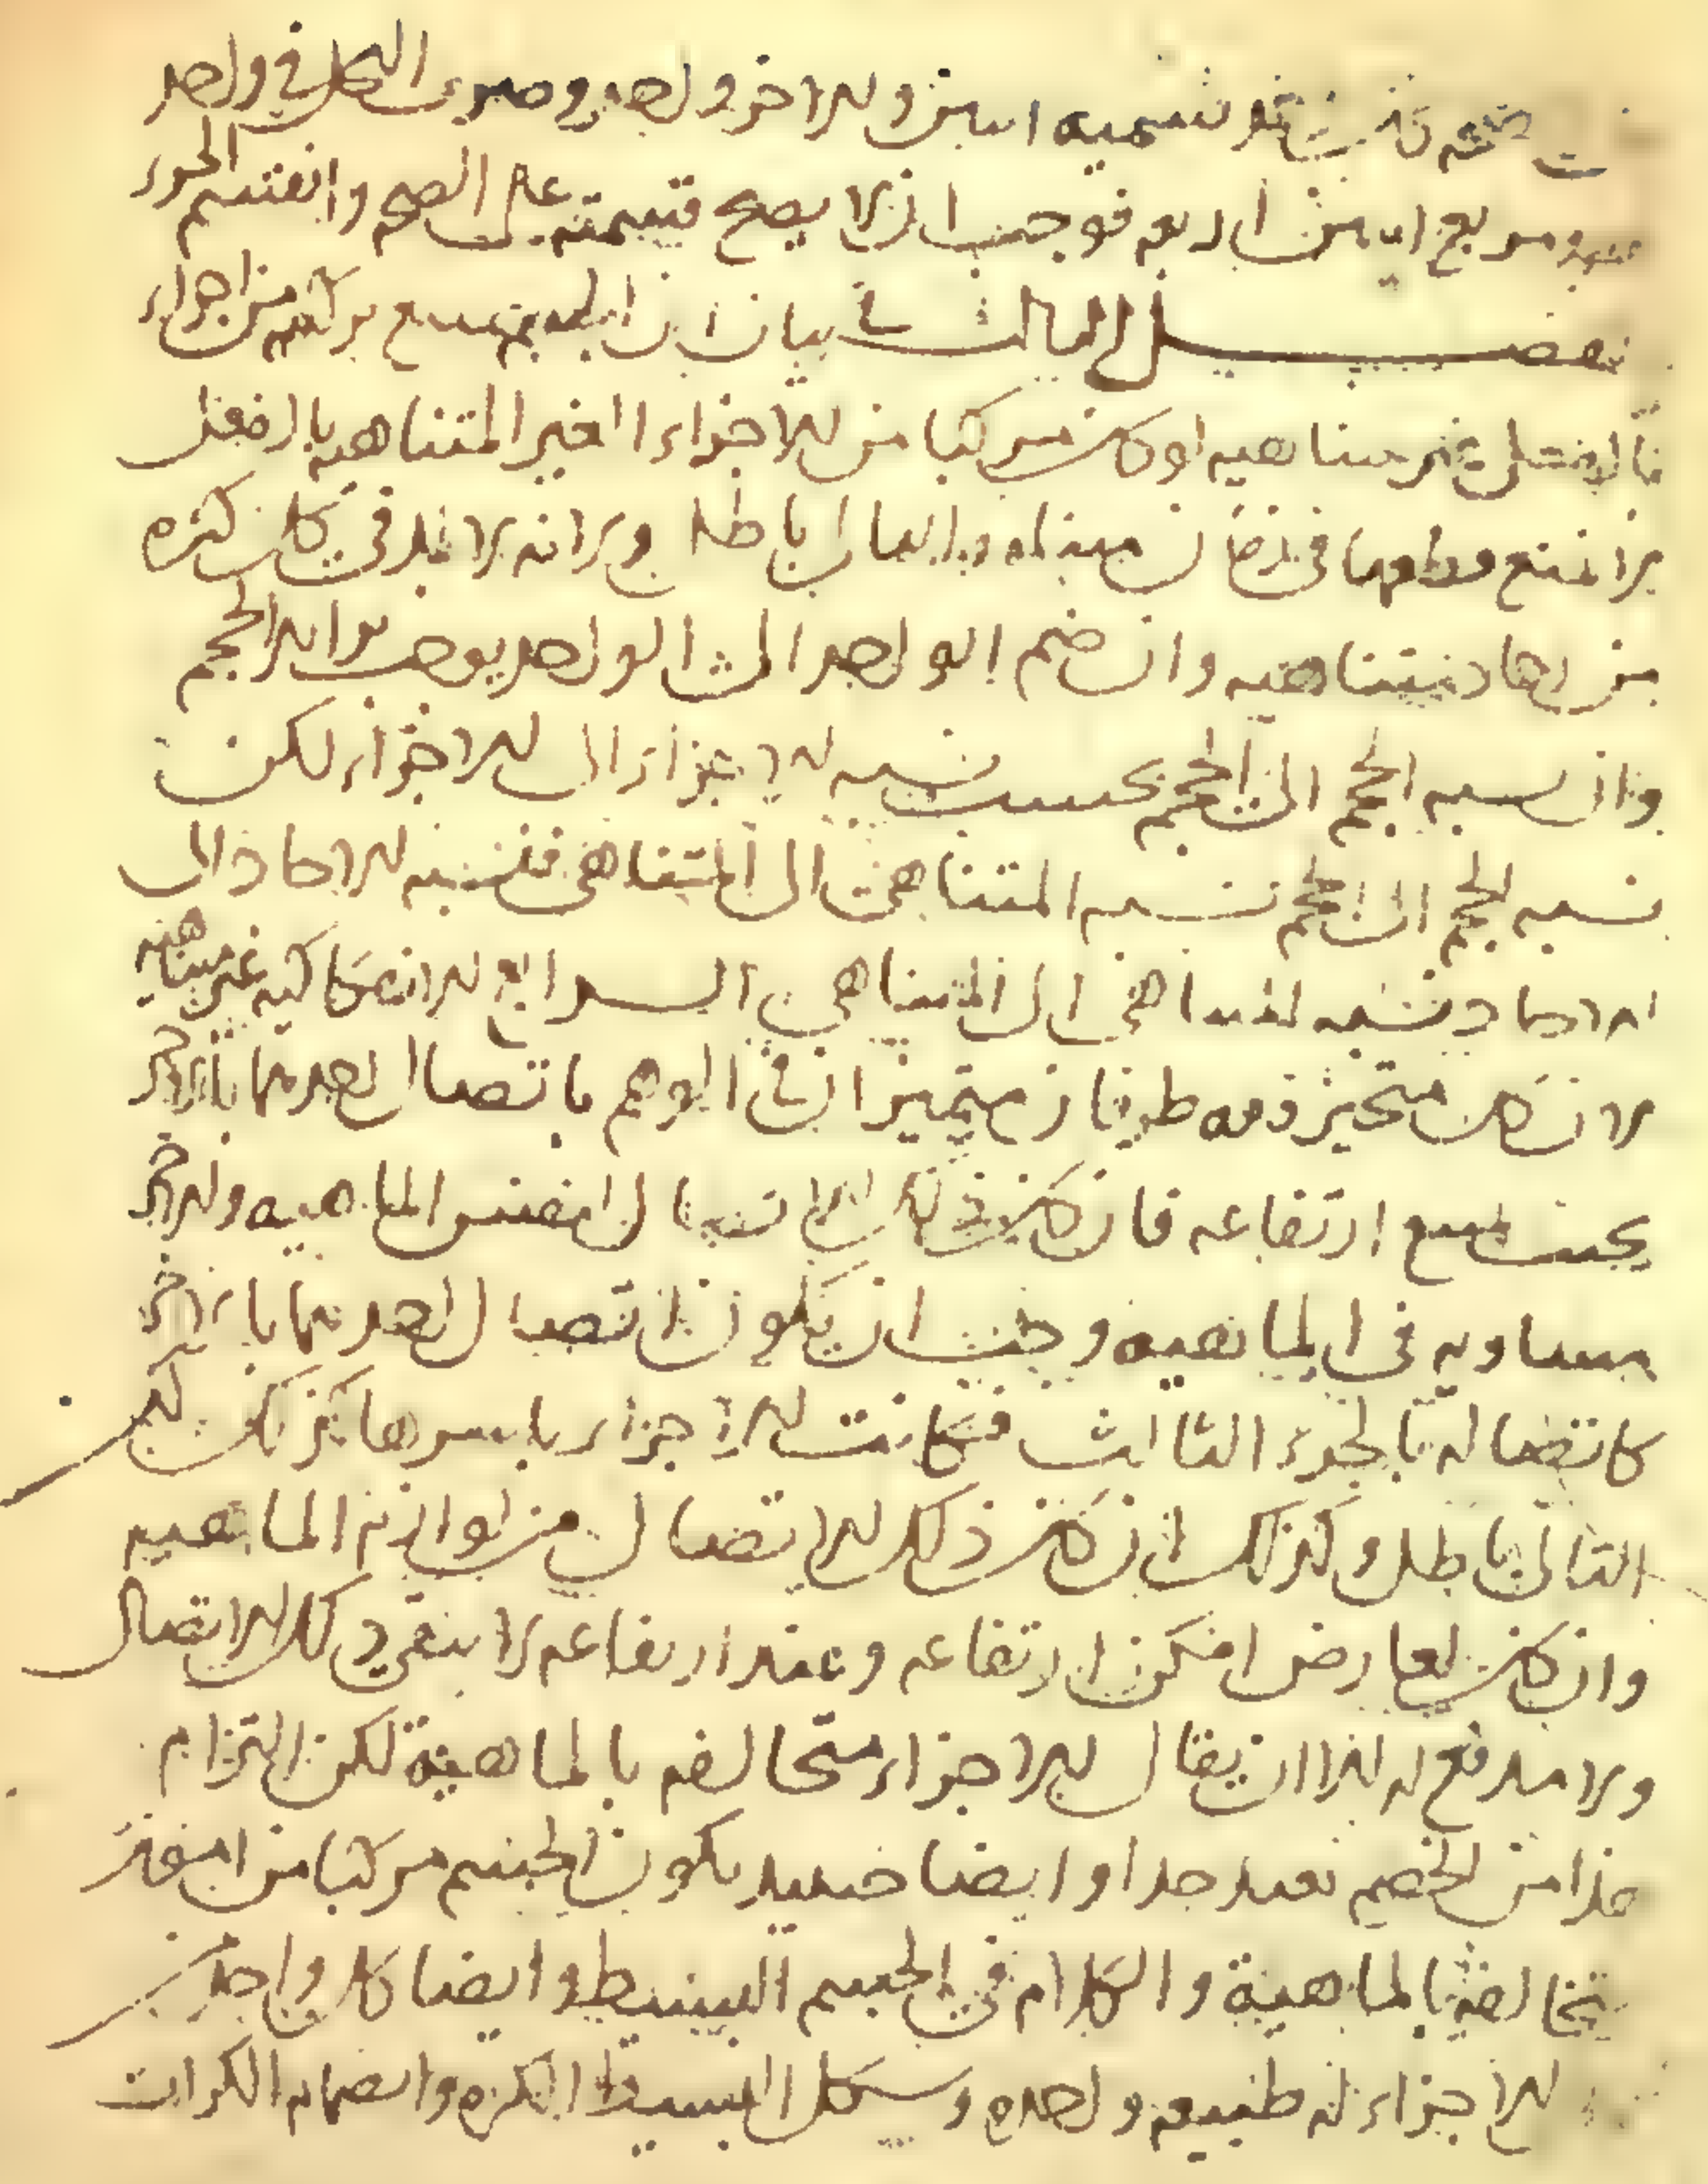 نسميه اثنين وللاخر ولحد ونضرب الكل في ولحد
ومربع اثنين اربعه فوجب ان لا يصح قسمته على الصحه وانقسم الجزء
الفصل الثالث في بيان ان الجسم يمتنع تركبه من اجزاء
بالفعل غير متناهيه لو كان مركبا من للاجزاء الغير المتناهيه بالفعل
لامتنع قطعها في زمان متناه والتالي باطل ولانه لا بد في كل كثره
من احاد متناهيه وان ضم الولحد الى الولحد يوجب زياده الحجم
وان نسبه الحجم الى الحجم بحسب نسبه للاجزاء الى للاجزاء لكن
نسبه الحجم الى الحجم نسبه المتناهي الى المتناهي فنسبه للاحاد الى
للاحاد نسبه المتناهي الى المتناهي الرابع للانفكاكيه غير متناهيه
لان كل متحيز فله طرفان متميزان في الوهم فاتصال احدهما بالاخر
بحيث يمتنع ارتفاعه فان كان ذلك الاتصال لنفس الماهيه وللاخر
يساويه في الماهيه وجب ان يكون اتصال احدهما بالاخر
كاتصاله بالجزء الثالث فكانت للاجزاء باسرها كذلك لكن
التالي باطل وكذلك ان كان ذلك للاتصال من لوازم الماهيه
وان كان لعارض امكن ارتفاعه وعند ارتفاعه لا يبقى ذلك للاتصال
ولا مدفع لهذا الا ان يقال للاجزاء متخالفه بالماهية لكن التزام
هذا من الخصم بعيد جدا وايضا حينئذ يكون الجسم مركبا من امور
متخالفة بالماهية والكلام في الجسم البسيط وايضا كل واحد من
للاجزاء له طبيعه ولحده وشكل البسيط الكره وانضمام الكرات